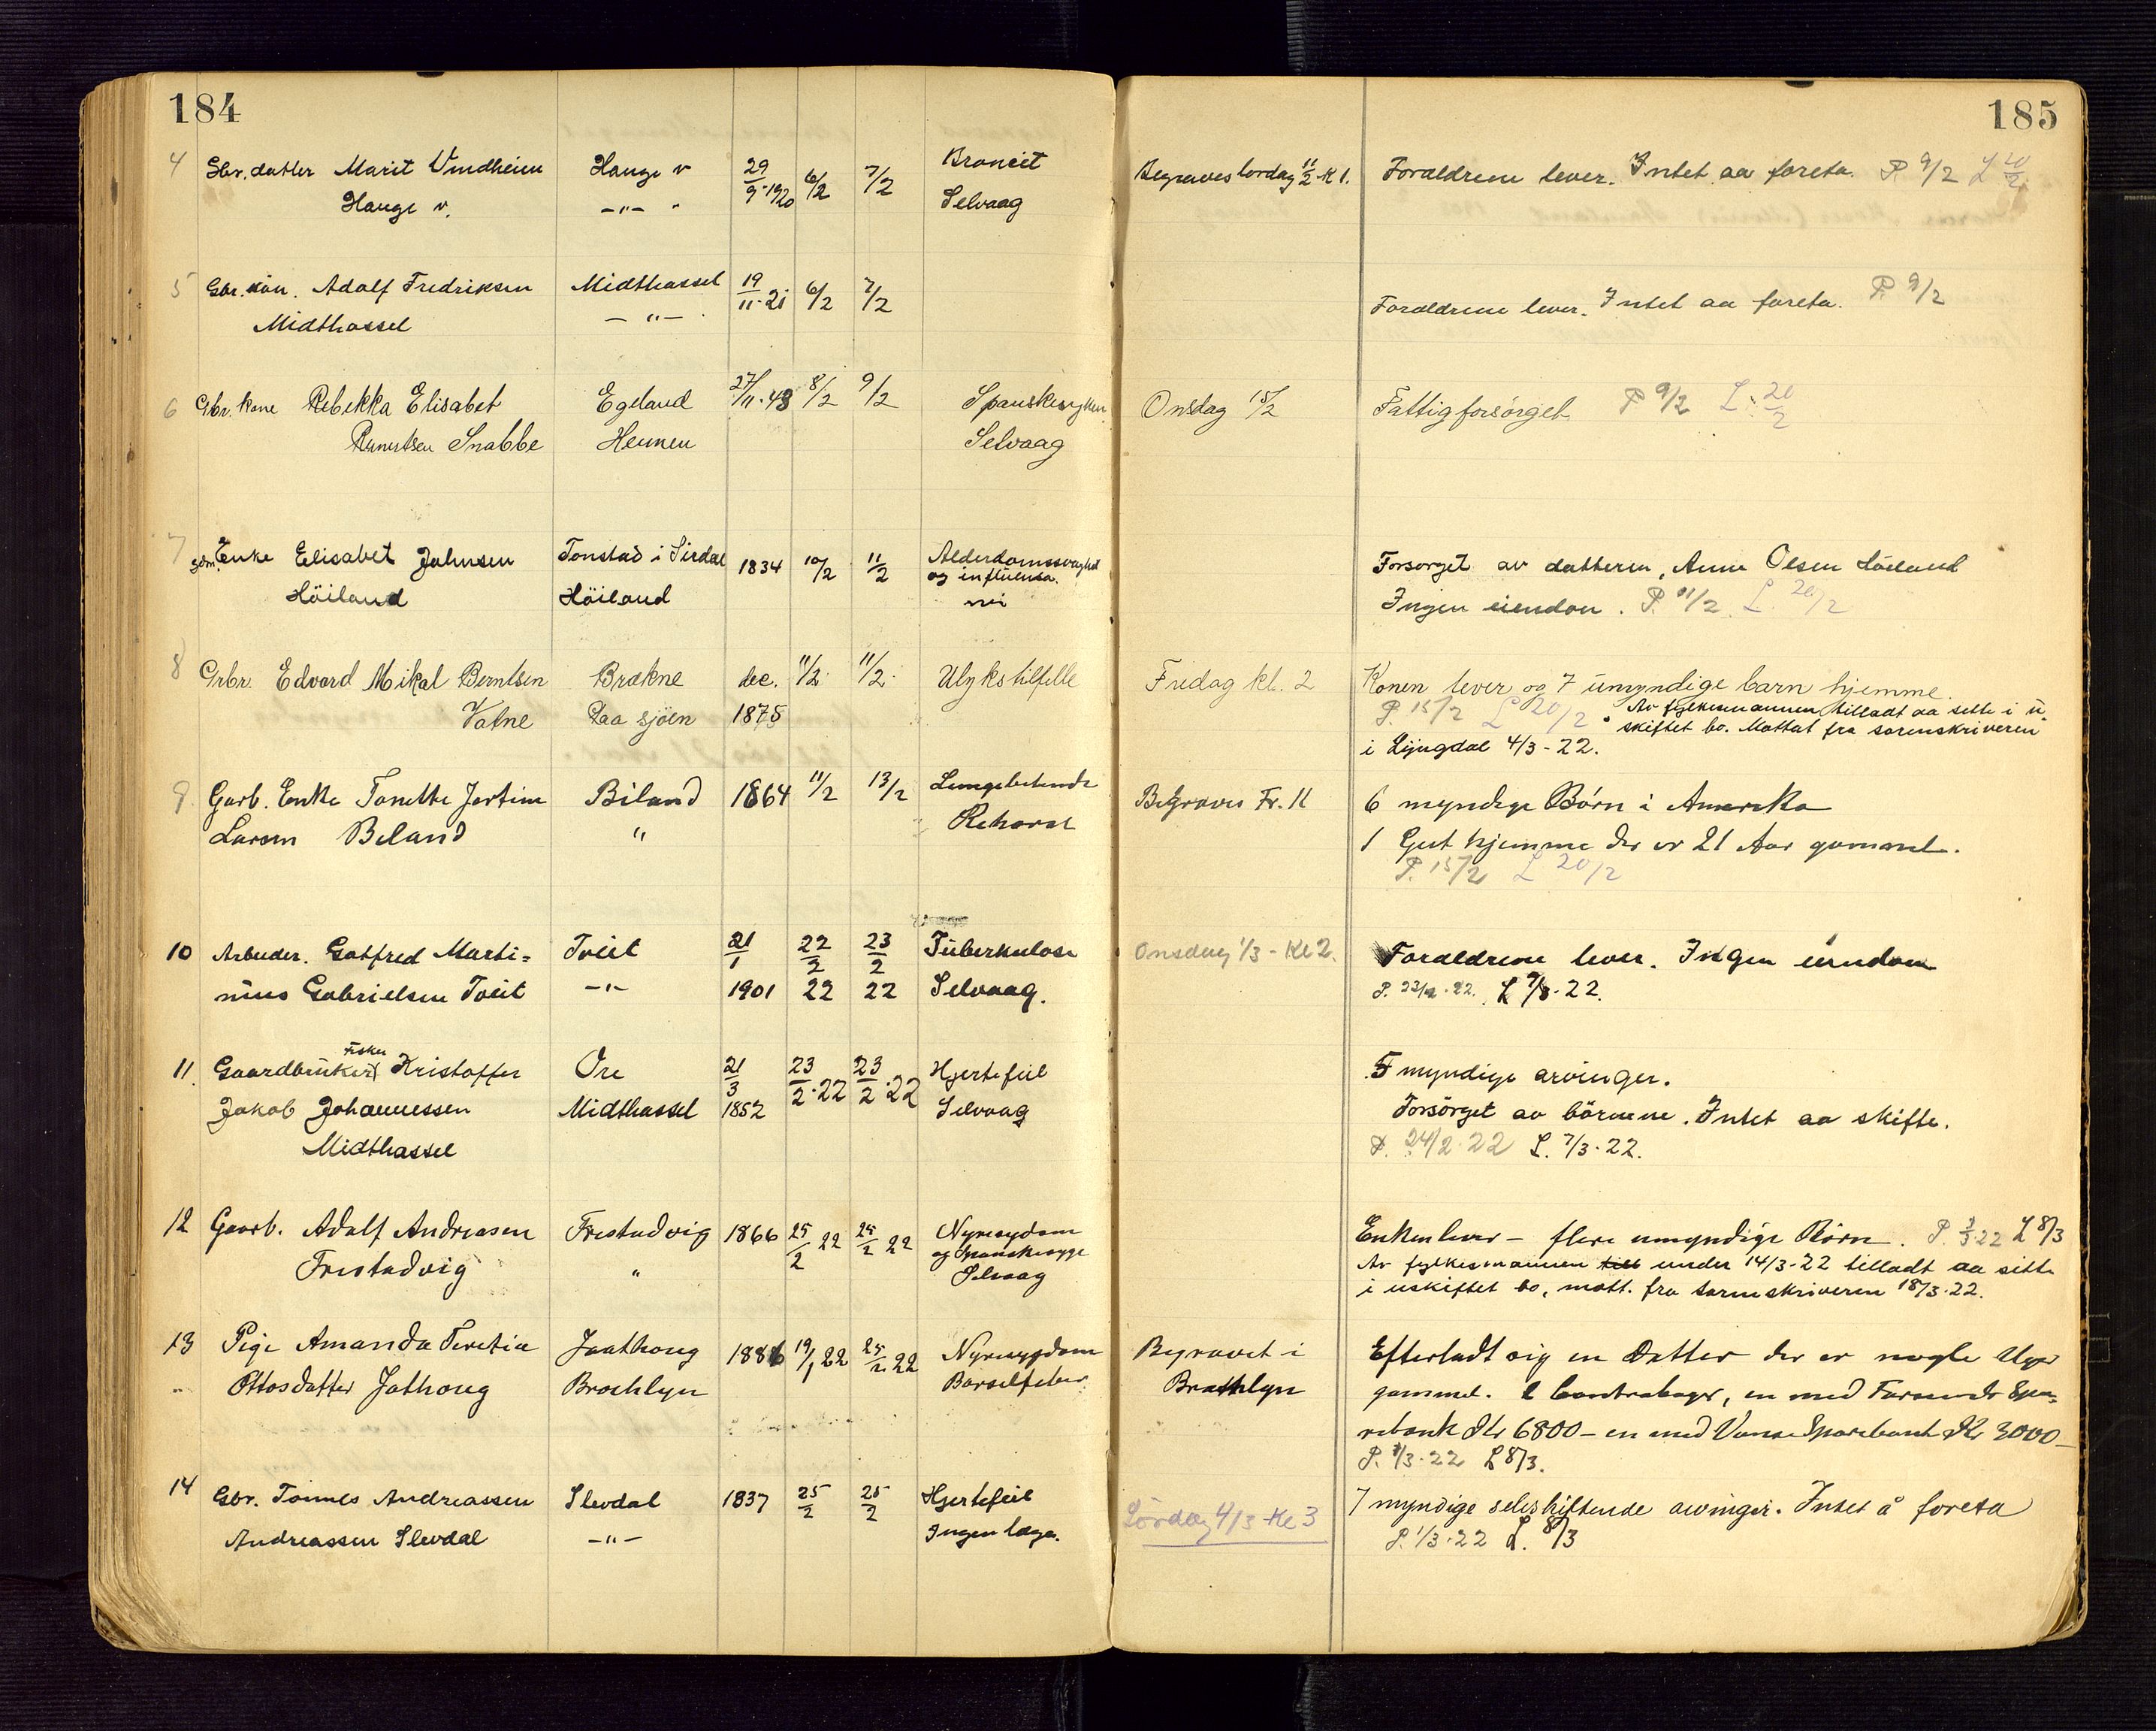 184
4 Gbr. datter Marit Vindheim Hauge v 29/9-1920 6/2 7/2 Broncit
Hauge v. —"— " Selvaag
5 Gbr. søn. Adolf Fredriksen Midthassel 19/11-21 6/2 7/2
Midthassel —"—
6 Gbr. kone Rebekka Elisabet Egeland 27/11-43 8/2 9/2 Spanskesyken
Snabbe Selvaag
7 Enke Elisabet Johnsen Tonstad i Sirdal 1834 10/2 11/2 Alderdomssvaghet
og influensa.
Höiland Höiland nei
8 Grbr. Edvard Mikal Berntsen Brækne dec. 11/2 11/2 Ulykstilfelle
Vatne Paa sjöen 1875
9 Garb. Enke Tonette Jortine Biland 1864 11/2 13/2 Lungebetende
Larsen Beland "
10 Arbeider. Gotfred Marti= Tveit 21/1 22/2 23/2 Tüberkulose
nius Gabrielsen Tveit —"— 1901 22 22 Selvaag.
Fisker
11. Gaardbrüker Kristoffer Ore 21/3 23/2·22 23/2·22 Hjertefeil
Jakob Johannessen Midthassel 1852 Selvaag
Midthassel
12 Gaarb. Adolf Andreasen Frestadvig 1866 25/2 22 25/2 22 Nyresydom
og Spanskesyge
Frestadvig " Selvaag
13 Pige Amanda Teretie Jaathoug 1886 19/1 22 25/2 22 Nyresygdom
Ottosdatter Jathoug Brooklyn Barselfeber
14 Gbr. Tønnes Andreassen Slevdal 1837 25/2 25/2 Hjertefeil
Andreassen Slevdal —"— Ingen læge.
185
Begraves lordag 11/2 Kl 1. Foraldrene lever. Intet aa foreta. P 9/2 L 20/2
Foraldrene lever. Intet aa foreta. P. 9/2
Onsdag 15/2 Fattigforsørget P 9/2 L. 20/2
Forsorget av datteren, Anne Olsen Höiland
Ingen eiendom. P. 11/2 L. 20/2
Fredag kl. 2 Konen lever og 7 ümyndige barn hjemme.
P. 15/2 L 20/2 Av fylkesmannen tilladt aa sitte i ü-
skiftet bo. Mottat fra sorenskriveren
i Lyngdal 4/3-22.
Begraves Fr. 11 6 myndige Børn i Amerika
1 Gut hjemme der er 21 Aar gammel.
P. 15/2 L 20/2
Onsdag 1/3 - Kl 2. Foraldrene lever. Ingen eiendom
P. 23/2·22. L 7/3·22.
5 myndige arvinger.
Forsörget av börnene. Intet aa skifte.
P. 24/2·22 L. 7/3·22.
Enken lever – flere umyndige Børn. P. 3/3 22 L 8/3
Av fylkesmannen under 14/3-22 tilladt aa sitte
i uskiftet bo, mott. fra sorenskriveren 18/3·22.
Begravet i Efterladt sig en Datter der er nogle Uger
Brooklyn gammel. 2 Contrabøger, en med Farsunds Spa-
rebank Kr 6800 – en med Vanse Sparebank Kr 3000 –
P. 1/3·22 L 8/3.
Lördag 4/3 - Kl 3 7 myndige selvskiftende arvinger. Intet å foreta
P. 1/3·22 L. 8/3